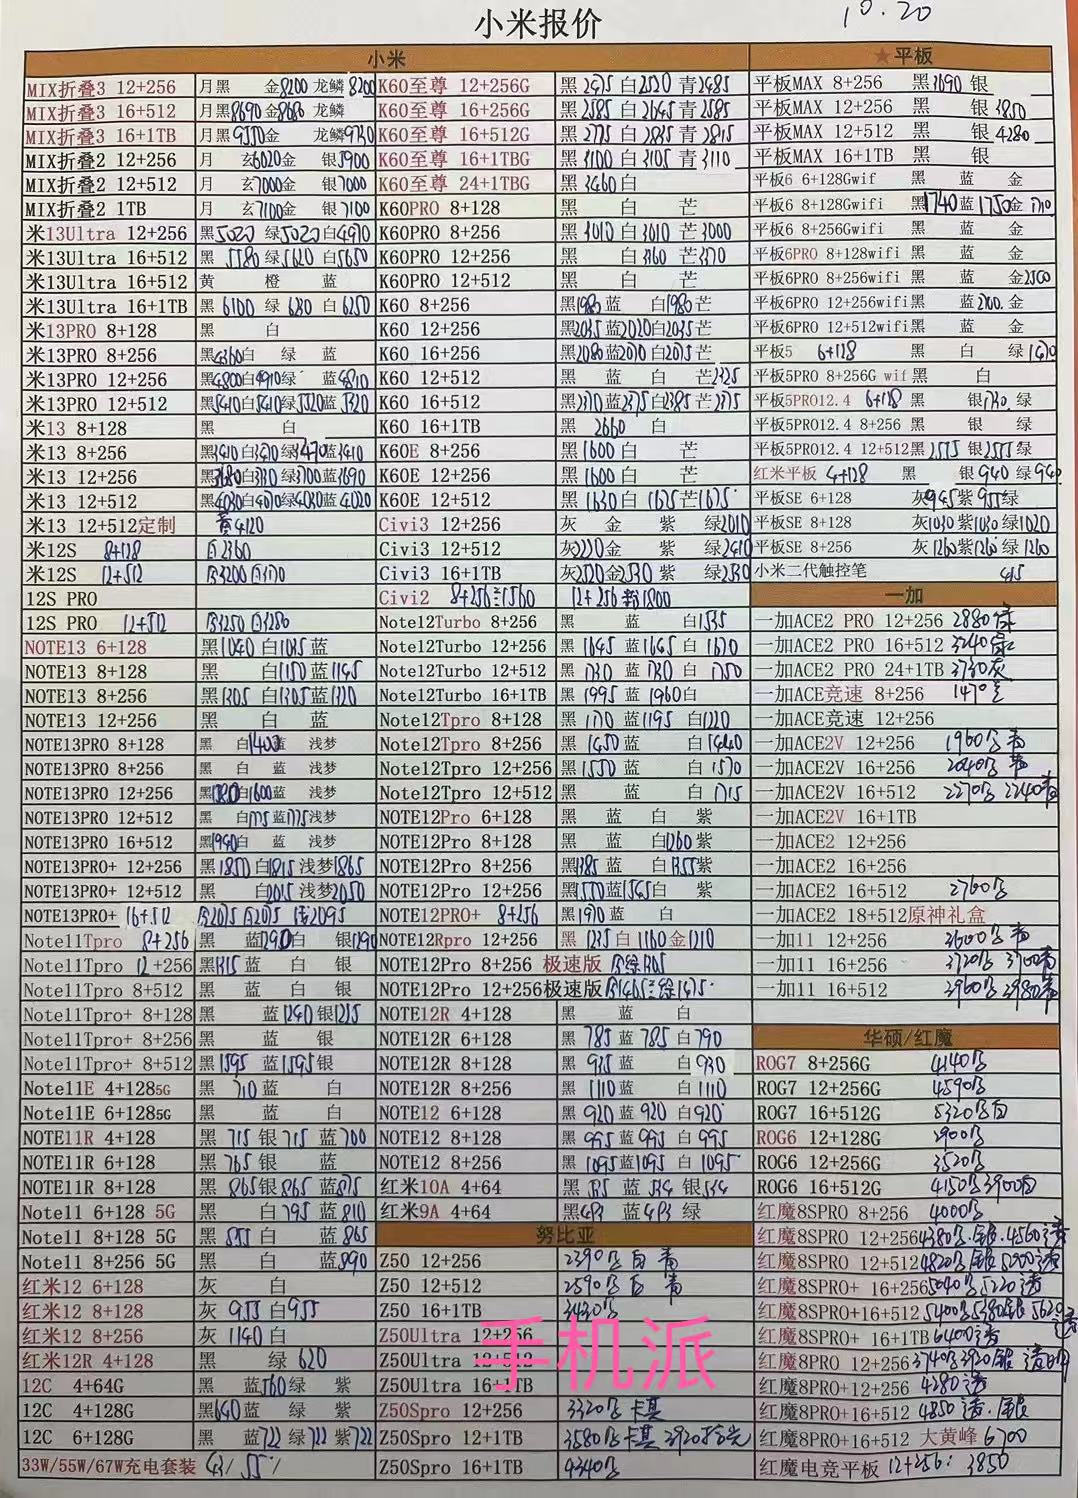 小米报价
10.20
小米
MIX折叠3 12+256 月黑 金8200 龙鳞8200
MIX折叠3 16+512 月黑8690金8680 龙鳞
MIX折叠3 16+1TB 月黑9550金 龙鳞9730
MIX折叠2 12+256 月 玄6020金 银5900
MIX折叠2 12+512 月 玄7000金 银7000
MIX折叠2 1TB 月 玄7100金 银7100
米13Ultra 12+256 黑5020 绿5020白4970
米13Ultra 16+512 黑5580绿5620白5650
米13Ultra 16+512 黄 橙 蓝
米13Ultra 16+1TB 黑6100 绿 白6250
米13PRO 8+128 黑 白
米13PRO 8+256 黑4360白 绿 蓝
米13PRO 12+256 黑4800白4910绿 蓝4810
米13PRO 12+512 黑5410白5410绿5520蓝5520
米13 8+128 黑 白
米13 8+256 黑3410白 绿 蓝3410
米13 12+256 黑 白 绿3700蓝3690
米13 12+512 黑4030白4070绿4030蓝4020
米13 12+512定制 黄4120
米12S 8+128 白2360
米12S 12+512
12S PRO
12S PRO 12+512
NOTE13 6+128 黑1040白1035蓝
NOTE13 8+128 黑 白1150蓝1145
NOTE13 8+256 黑1305白1305蓝1320
NOTE13 12+256 黑 白 蓝
NOTE13PRO 8+128 黑 白1400蓝 浅梦
NOTE13PRO 8+256 黑 白 蓝 浅梦
NOTE13PRO 12+256 黑 白1600蓝 浅梦
NOTE13PRO 12+512 黑 白1775蓝1775浅梦
NOTE13PRO 16+512 黑1990白 蓝 浅梦
NOTE13PRO+ 12+256 黑1850白1815浅梦1865
NOTE13PRO+ 12+512 黑 白2015浅梦2050
NOTE13PRO+ 16+512
Note11Tpro 8+256 黑 蓝1290白 银1290
Note11Tpro 12+256 黑1315蓝 白 银
Note11Tpro 8+512 黑 蓝 白 银
Note11Tpro+ 8+128 黑 蓝1240银1215
Note11Tpro+ 8+256 黑 蓝 银
Note11Tpro+ 8+512 黑1595蓝1595银
Note11E 4+128 5G 黑 710蓝 白
Note11E 6+128 5G 黑 蓝 白
NOTE11R 4+128 黑 715银715蓝700
NOTE11R 6+128 黑 765银 蓝
NOTE11R 8+128 黑 865银865蓝875
Note11 6+128 5G 黑 白795蓝810
Note11 8+128 5G 黑 855白 蓝865
Note11 8+256 5G 黑 白 蓝890
红米12 6+128 灰 白
红米12 8+128 灰 955白955
红米12 8+256 灰 1140白
红米12R 4+128 黑 绿620
12C 4+64G 黑 蓝560绿 紫
12C 4+128G 黑640蓝 绿 紫
12C 6+128G 黑 蓝722绿722紫722
33W/55W/67W充电套装 43/ 55/
K60至尊 12+256G 黑2475白2520青2485
K60至尊 16+256G 黑2585白2645青2585
K60至尊 16+512G 黑2775白2835青2815
K60至尊 16+1TBG 黑3100白3105青3110
K60至尊 24+1TBG 黑3460白
K60PRO 8+128 黑 白 芒
K60PRO 8+256 黑3010白3010芒3000
K60PRO 12+256 黑 白3160芒3170
K60PRO 12+512 黑 白 芒
K60 8+256 黑1980蓝 白1980芒
K60 12+256 黑2035蓝2020白2035芒
K60 16+256 黑2080蓝2070白2075芒
K60 12+512 黑 蓝 白 芒2325
K60 16+512 黑2370蓝2375白2385芒2375
K60 16+1TB 黑 2660白
K60E 8+256 黑1600白 芒
K60E 12+256 黑1600白 芒
K60E 12+512 黑1630白1675芒1675
Civi3 12+256 灰 金 紫 绿2010
Civi3 12+512 灰2220金 紫 绿2410
Civi3 16+1TB 灰2520金2530紫 绿2530
Civi2 8+256 1560 12+256 1800
Note12Turbo 8+256 黑 蓝 白1535
Note12Turbo 12+256 黑1645蓝1665白1670
Note12Turbo 12+512 黑1730蓝1730白1750
Note12Turbo 16+1TB 黑1995蓝1960白
Note12Tpro 8+128 黑1170蓝1195白1220
Note12Tpro 8+256 黑1450蓝 白1440
Note12Tpro 12+256 黑1550蓝 白1570
Note12Tpro 12+512 黑 蓝 白1715
NOTE12Pro 6+128 黑 蓝 白 紫
NOTE12Pro 8+128 黑 蓝 白1260紫
NOTE12Pro 8+256 黑1385蓝 白1355紫
NOTE12Pro 12+256 黑1570蓝1565白 紫
NOTE12PRO+ 8+256 黑1970蓝 白
NOTE12Rpro 12+256 黑1235白1160金1210
NOTE12Pro 8+256 极速版
NOTE12Pro 12+256极速版
NOTE12R 4+128 黑 蓝 白
NOTE12R 6+128 黑785蓝785白790
NOTE12R 8+128 黑 915蓝 白930
NOTE12R 8+256 黑1110蓝 白1110
NOTE12 6+128 黑920蓝920白920
NOTE12 8+128 黑995蓝995白995
NOTE12 8+256 黑1095蓝1095白1095
红米10A 4+64 黑535蓝534银534
红米9A 4+64 黑493蓝493绿
努比亚
Z50 12+256 2390 白 青
Z50 12+512 2590 白 青
Z50 16+1TB 3430
Z50Ultra 12+256
Z50Ultra 12+512
Z50Ultra 16+1TB
Z50Spro 12+256 3320 卡其
Z50Spro 12+1TB 3580 卡其 3920
Z50Spro 16+1TB 4340
★平板
平板MAX 8+256 黑3690银
平板MAX 12+256 黑 银3850
平板MAX 12+512 黑 银4280
平板MAX 16+1TB 黑 银
平板6 6+128Gwif 黑 蓝 金
平板6 8+128Gwifi 黑1740蓝1750金1710
平板6 8+256Gwifi 黑 蓝 金
平板6PRO 8+128wifi 黑 蓝 金
平板6PRO 8+256wifi 黑 蓝 金2500
平板6PRO 12+256wifi黑 蓝2700.金
平板6PRO 12+512wifi黑 蓝 金
平板5 6+128 黑 白 绿1470
平板5PRO 8+256G wif黑 白
平板5PRO12.4 6+128 黑 银1730.绿
平板5PRO12.4 8+256 黑 银 绿
平板5PRO12.4 12+512黑2575银2575绿
红米平板 4+128 黑 银940绿940
平板SE 6+128 灰945紫955绿
平板SE 8+128 灰1030紫1030绿1020
平板SE 8+256 灰1260紫1260绿1260
小米二代触控笔 415
一加
一加ACE2 PRO 12+256 2880绿
一加ACE2 PRO 16+512 3240绿
一加ACE2 PRO 24+1TB 3730灰
一加ACE竞速 8+256 1470
一加ACE竞速 12+256
一加ACE2V 12+256 1960 青
一加ACE2V 16+256 2040 青
一加ACE2V 16+512 2270 2240青
一加ACE2V 16+1TB
一加ACE2 12+256
一加ACE2 16+256
一加ACE2 16+512 2760
一加ACE2 18+512原神礼盒
一加11 12+256 3600 青
一加11 16+256 3720 3700青
一加11 16+512 3960 3980青
华硕/红魔
ROG7 8+256G 4140
ROG7 12+256G 4590
ROG7 16+512G 5320 白
ROG6 12+128G 2900
ROG6 12+256G 3520
ROG6 16+512G 4150 3900白
红魔8SPRO 8+256 4000
红魔8SPRO 12+256 4380.银.4560透
红魔8SPRO 12+512 4820 银5000透
红魔8SPRO+ 16+256 5040 5220透
红魔8SPRO+16+512 5400 5380银 5620透
红魔8SPRO+ 16+1TB 6400透
红魔8PRO 12+256 3740 3920银 透明
红魔8PRO+12+256 4280透
红魔8PRO+16+512 4850透.银
红魔8PRO+16+512 大黄蜂 6700
红魔电竞平板 12+256: 3850
手机派